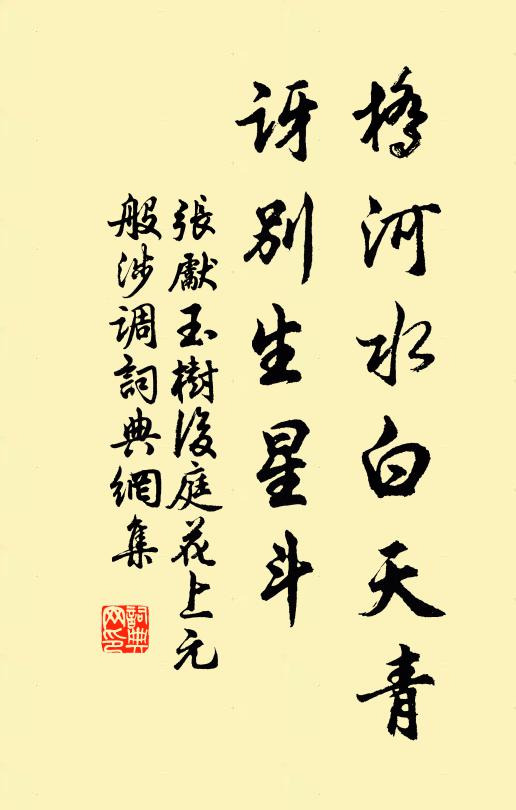 橋河水白天青
訝別生星斗
張獻玉樹後庭花上元
般涉調詞典網集
詞典
网印